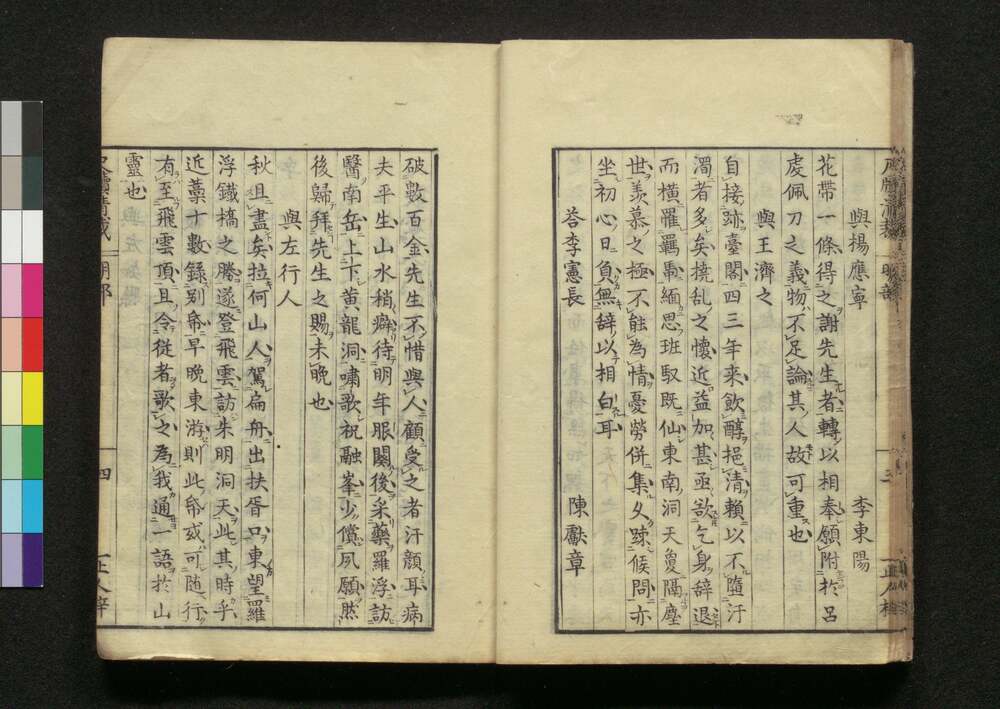 與楊應寧 李東陽
花帶一條得之謝先生者轉以相奉願附於呂
虔佩刀之義物不足論其人故可重也
與王濟之
自接跡臺閣四三年来飲醇挹清賴以不隨汙
濁者多矣撓乱之懷近益加甚亟欲乞身辞退
而橫罹羈靮緬思班馭既仙東南洞天敻隔塵
世羨慕之極不能為情憂勞併集久踈候問亦
坐初心日負無辞以相白耳
荅李憲長 陳獻章
破數百金先生不惜與人顧受之者汗顔耳病
夫平生山水稍癖待明年服闋後采藥羅浮訪
醫南岳上下黄龍洞嘯歌祝融峯少償夙願然
後歸拜先生之賜未晚也
與左行人
秋且盡矣拉何山人駕扁舟出扶胥口東望羅
浮鐵橋之勝遂登飛雲訪朱明洞天此其時乎
近藁十數錄别帋早晚東游則此帋或可随行
有至飛雲頂且令從者歌之為我通一語於山
靈也
四